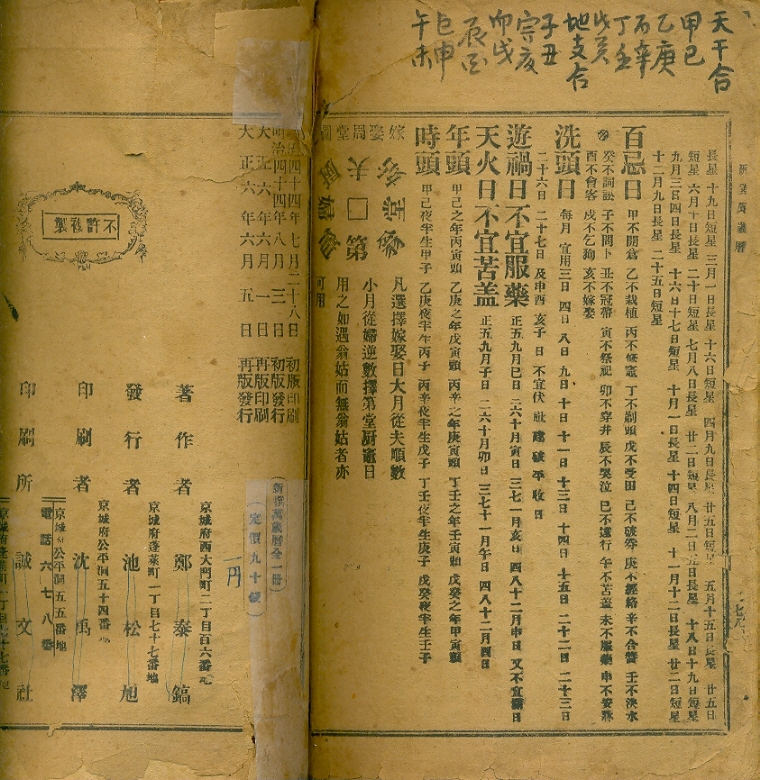 天干合
甲己
乙庚
丙辛
丁壬
戊癸
地支合
子丑
寅亥
卯戌
辰酉
巳申
午未
新選萬歲曆
長星 十九日短星 三月一日長星 十六日短星 四月九日長星 廿五日短星 五月十五日長星 廿五日
短星 六月十日長星 二十日短星 七月八日長星 廿二日短星 八月二日五日長星 十八日十九日短星
九月三日四日長星 十六日十七日短星 十月一日長星 十四日短星 十一月十二日長星 廿二日短星
十二月九日長星 二十五日短星
百忌日 甲不開倉 乙不栽植 丙不修竈 丁不剃頭 戊不受田 己不破券 庚不經絡 辛不合醬 壬不決水
癸不詞訟 子不問卜 丑不冠帶 寅不祭祀 卯不穿井 辰不哭泣 巳不遠行 午不苫蓋 未不服藥 申不安牀
酉不會客 戌不乞狗 亥不嫁娶
洗頭日 每月 宜用三日 四日 八日 九日 十日 十一日 十三日 十四日 十五日 二十二日 二十三日
二十六日 二十七日 及申酉 亥子 日 不宜伏 社 建 破 平 收 日
遊禍日不宜服藥 正五九月巳日 二六十月寅日 三七一月亥日 四八十二月申日 又不宜
天火日不宜苫盖 正五九月子日 二六十月卯日 三七十一月午日 四八十二月酉日
年頭 甲己之年丙寅頭 乙庚之年戊寅頭 丙辛之年庚寅頭 丁壬之年壬寅頭 戊癸之年甲寅頭
時頭 甲己夜半生甲子 乙庚夜半生丙子 丙辛夜半生戊子 丁壬夜半生庚子 戊癸夜半生壬子
嫁娶周堂圖
夫
第
凡選擇嫁娶日大月從夫順數
小月從婦逆數擇第堂厨竈日
用之如遇翁姑而無翁姑者亦
可用
新選萬歲曆全一冊
(定價九十錢)
一円
四十四年七月二十八日 初版印刷
明治四十四年八月三日 初版發行
大正六年六月一日 再版印刷
大正六年六月五日 再版發行
不許複製
京城府西大門町二丁目百六番地
著作者 鄭泰鎬
京城府蓬萊町一丁目七十七番地
發行者 池松旭
京城府公平洞五十四番地
印刷者 沈禹澤
京城府公平洞五五番地
電話 六七八番
印刷所 誠文社
京城府蓬萊町一丁目七十七番地